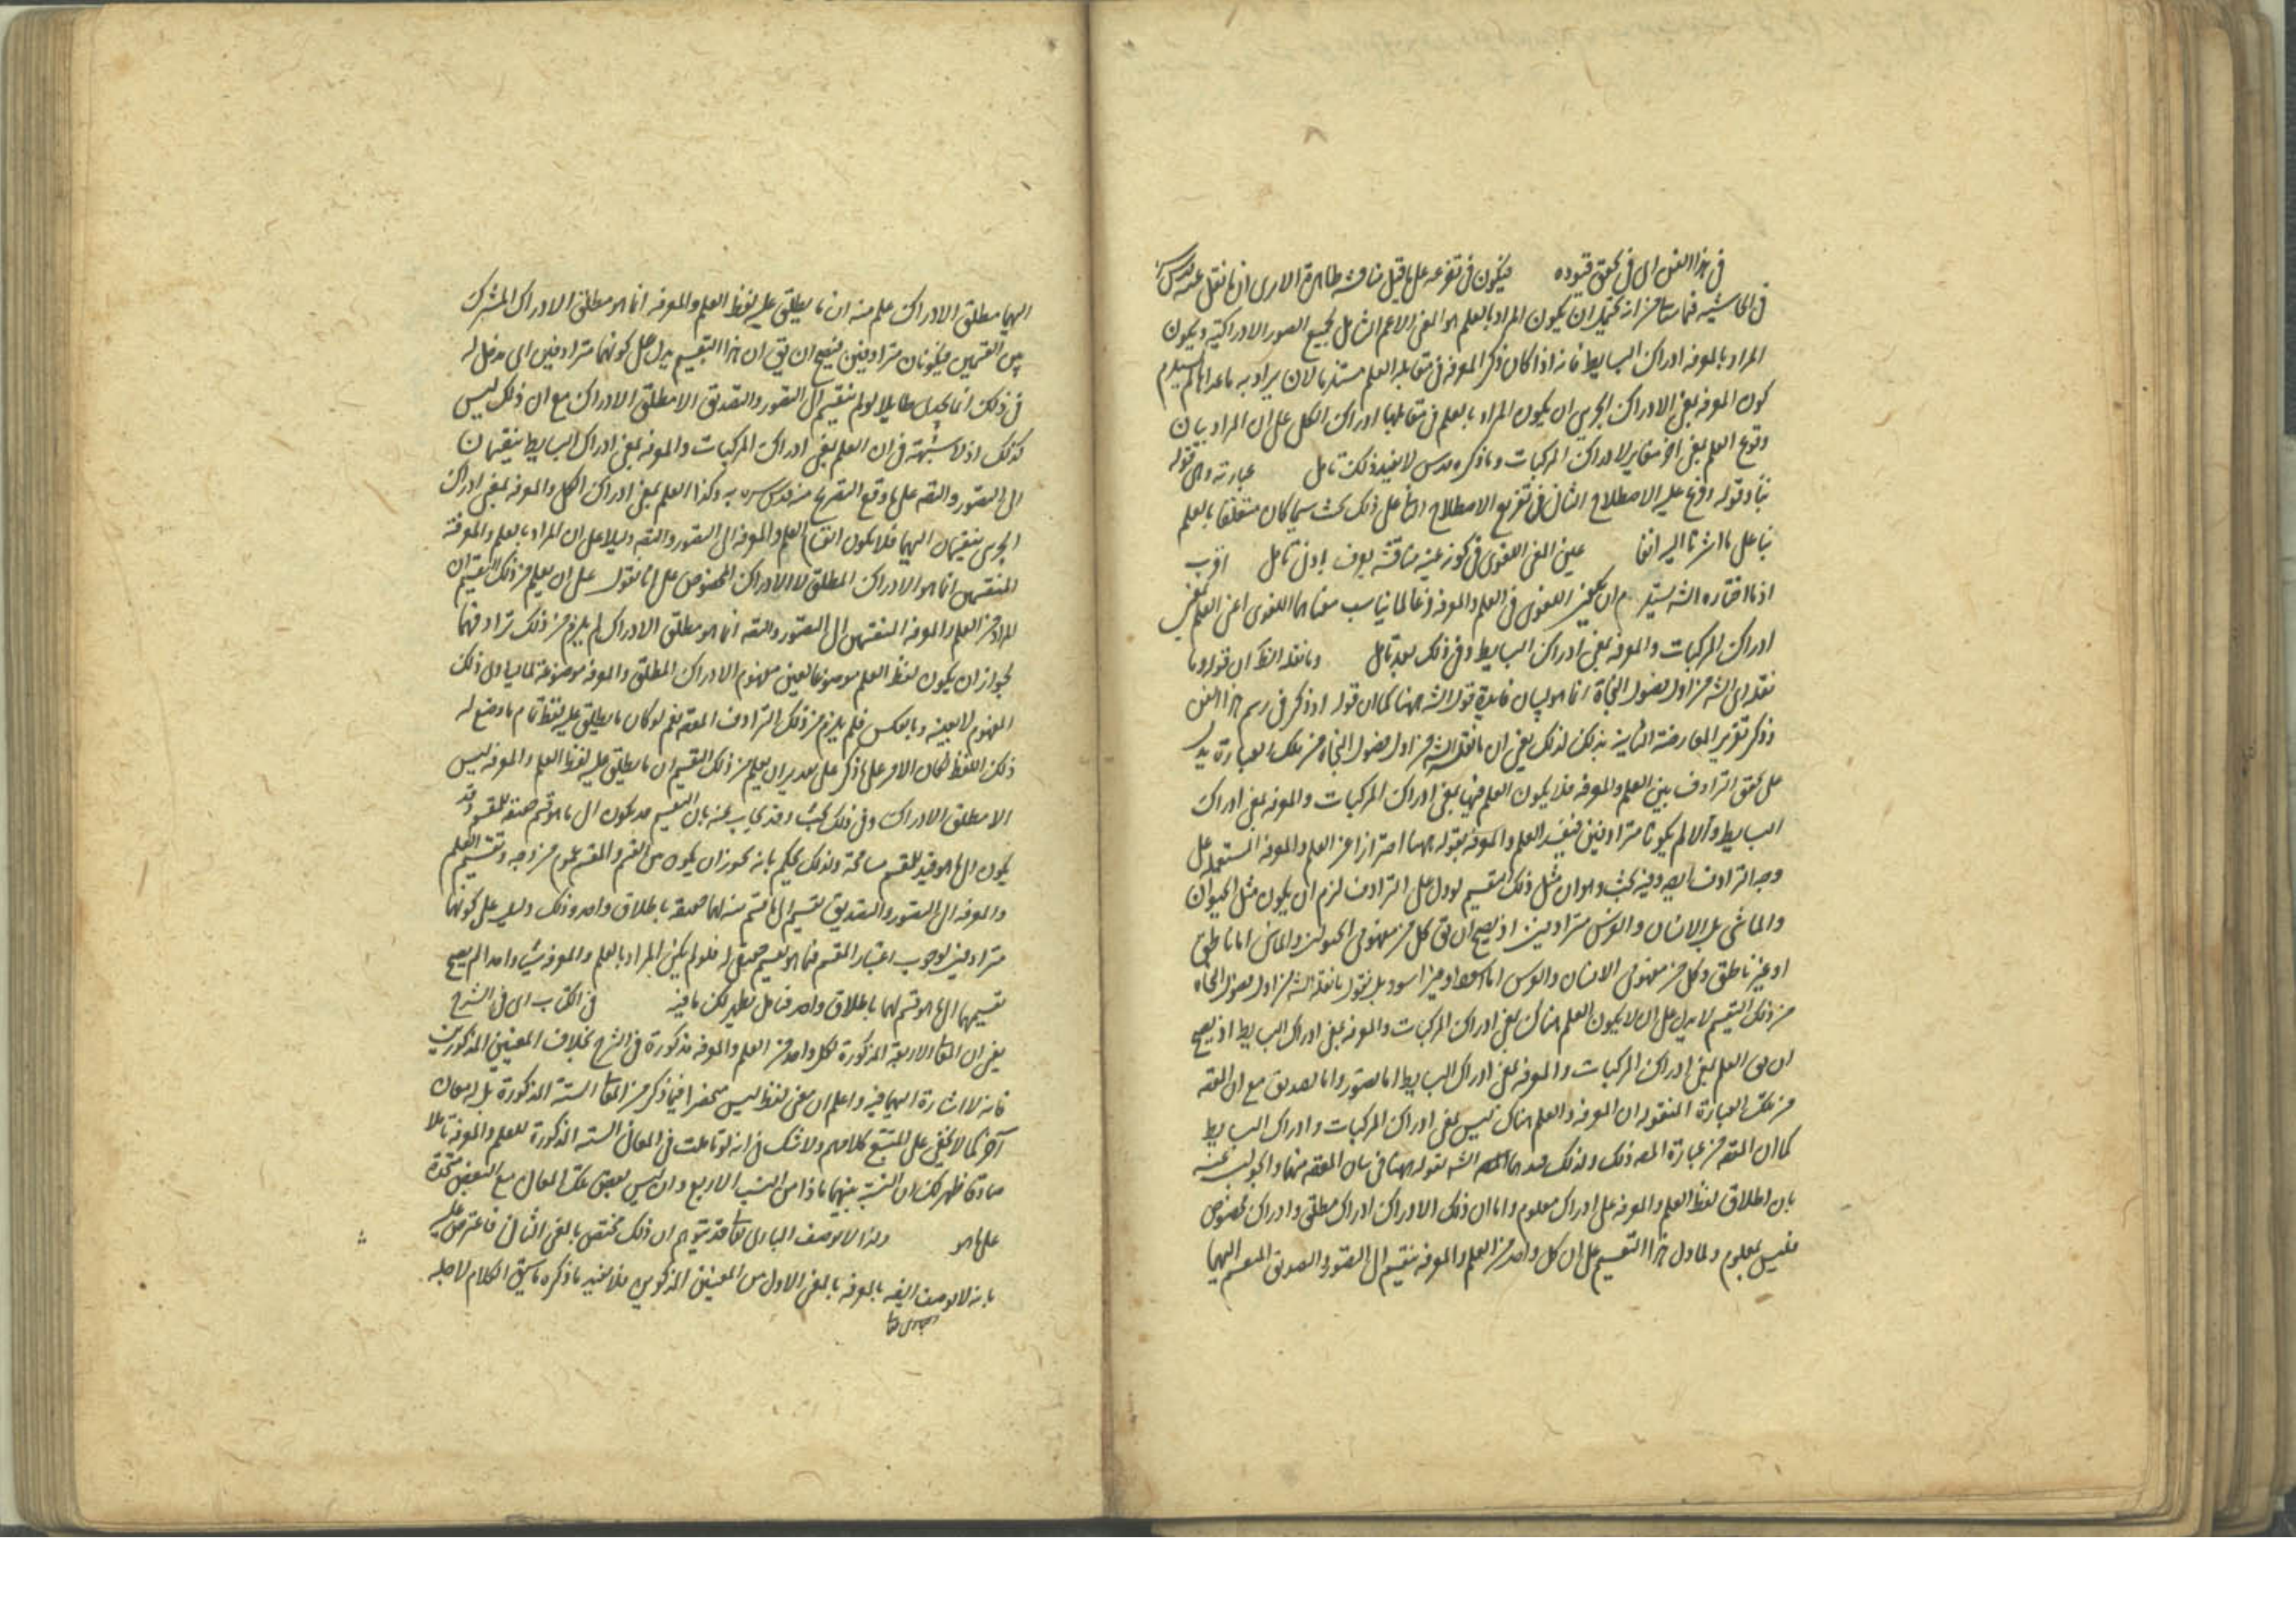 في هذا الفن اي في تحقق قيوده فيكون في تفرعه على ما قيل مناقشة ظاهرة الا يرى ان ما نقل عنه قدس سره
في الحاشية من انه يحتمل ان يكون المراد بالعلم هو المعنى الاعم الشامل لجميع الصور الادراكية ويكون
المراد بالمعرفة ادراك البسايط فانه اذا كان ذكر المعرفة في مقابلة العلم مستدعيا لان يراد به ما عداها لم يستلزم
كون المعرفة بمعنى الادراك الجزئي ان يكون المراد بالعلم في مقابلها ادراك الكلي على ان المراد بيان
وقوع العلم بمعنى اخر مغاير لادراك المركبات وما ذكره قدس لا يفيد ذلك تامل عبارته وهي قوله
وقوله وقع عليه الاصطلاح الثاني في تفريع الاصطلاح ايضا على ذلك بحث سيما كان متعلقا بالعلم
بناء على ما اشرنا اليه انفا عين المعنى اللغوي في كونه عينه مناقشة يعرف بادنى تامل اقرب
اذ ما اختاره الشه يستلزم ان المعنى اللغوي في العلم والمعرفة مما يناسب معناهما اللغوي اعني العلم بمعنى
ادراك المركبات والمعرفة بمعنى ادراك البسايط وفي ذلك بعد تامل وما نقله الظ ان قوله وما
نقله اي الشه من اول فصول النجاة انما هو لبيان فايدة قول الشه ههنا كما ان قوله اذ ذكر في رسم هذا الفن
وذكر تقرير المعارضة الثانية بذلك لذلك يعني ان ما نقله الشه من اول فصول النجاة من تلك العبارة يدل
على تحقق الترادف بين العلم والمعرفة فلا يكون العلم فيها بمعنى ادراك المركبات والمعرفة بمعنى ادراك
البسايط والا لم يكونا مترادفين فيفيد العلم والمعرفة بقوله ههنا احترازا عن العلم والمعرفة المستعملة على
وجه الترادف وفيه بحث وهو ان مثل ذلك التقسيم لو دل على الترادف لزم ان يكون مثل الحيوان
والماشي بل الانسان والفرس مترادفين اذ يصح ان يق كل من مفهومي الحيوان والماشي اما ناطق
او غير ناطق وكل من مفهومي الانسان والفرس اما اسود او غير اسود بل نقول ما نقله الشه من اول فصول النجاة
من ذلك التقسيم لا يدل على ان لا يكون العلم هناك بمعنى ادراك المركبات والمعرفة بمعنى ادراك البسايط اذ يصح
ان يق العلم بمعنى ادراك المركبات والمعرفة بمعنى ادراك البسايط اما تصور واما تصديق مع ان المقه
من تلك العبارة المنقولة ان المعرفة والعلم هناك ليس بمعنى ادراك المركبات وادراك البسايط
كما ان المقه من عبارة المصه ذلك ولذلك الشه بقوله ههنا في بيان المقه منها والجواب عنه
بان اطلاق لفظ العلم والمعرفة على ادراك معلوم واما ان ذلك الادراك ادراك مطلق وادراك مخصوص
فليس بمعلوم ولما دل هذا التقسيم على ان كل واحد من العلم والمعرفة منقسم الى التصور والتصديق المنقسم اليهما
اليهما مطلق الادراك علم منه ان ما يطلق عليه لفظ العلم والمعرفة انما هو مطلق الادراك المشترك
بين القسمين فيكونان مترادفين فيصح ان يق ان هذا التقسيم يدل على كونهما مترادفين اي مدخل له
في ذلك انما يجدي طايلا لو لم ينقسم الى التصور والتصديق الا مطلق الادراك مع ان ذلك ليس
كذلك اذ لا شبهة في ان العلم بمعنى ادراك المركبات والمعرفة بمعنى ادراك البسايط ينقسمان
الى التصور والتصه على ما وقع التصريح منه قدس سره به وكذا العلم بمعنى ادراك الكلي والمعرفة بمعنى ادراك
الجزئي ينقسمان اليهما فلا يكون انقسام العلم والمعرفة الى التصور والتصه دليلا على ان المراد بالعلم والمعرفة
المنقسمين انما هو الادراك المطلق لا الادراك المخصوص على انا نقول على ان يعلم من ذلك التقسيم ان
المراد من العلم والمعرفة المنقسمين الى التصور والتصه انما هو مطلق الادراك لم يلزم من ذلك ترادفهما
لجواز ان يكون لفظ العلم موضوعا لعين مفهوم الادراك المطلق والمعرفة موضوعة لما يساوي ذلك
المفهوم لا بعينه وبالعكس فلم يلزم من ذلك الترادف المقه نعم لو كان ما يطلق عليه لفظ تمام ما وضع له
ذلك اللفظ لكان الامر على ما ذكر على تقدير ان يعلم من ذلك التقسيم ان ما يطلق عليه لفظ العلم والمعرفة ليس
الا مطلق الادراك وفي ذلك بحث وقد يجاب عنه بان التقسيم قد يكون الى ما هو قسم حقيقة للمقسم وقد
يكون الى ما هو قيد للقسم مسامحة ولذلك يحكم بانه يجوز ان يكون بين القسم والمقسم عموم من وجه وتقسيم العلم
والمعرفة الى التصور والتصديق تقسيم الى ما قسم منهما حقيقة باطلاق واحد وذلك دليل على كونهما
مترادفين لوجوب اعتبار المقسم فيما هو تقسيم حقيقي له فلو لم يكن المراد بالعلم والمعرفة شيئا واحدا لم يصح
تقسيمهما الى ما هو قسم لهما باطلاق واحد فتامل يظهر لك ما فيه في الكتاب اي في الشرح
يعني ان المعاني الاربعة المذكورة لكل واحد من العلم والمعرفة مذكورة في الشرح بخلاف المعنيين المذكورين
فانه لا اشارة اليهما فيه واعلم ان معنى لفظ ليس منحصرا فيما ذكر من المعاني الستة المذكورة بل له معان
آخر كما لا يخفى على المتتبع كلامهم ولا شك في انه لو تاملت في المعاني الستة المذكورة للعلم والمعرفة تاملا
صادقا ظهر لك ان النسبة بينهما ماذا من النسب الاربع وان ليس بعض تلك المعاني مع البعض متحدة
على ما هو ولذا لا يوصف الباري تعا قد يتوهم ان ذلك مختص بالمعنى الثاني فاعترض عليه
بانه لا يوصف ايضه بالمعرفة بالمعنى الاول من المعنيين المذكورين فلا يفيد ما ذكره ما سيق الكلام لاجله
الباري تعا